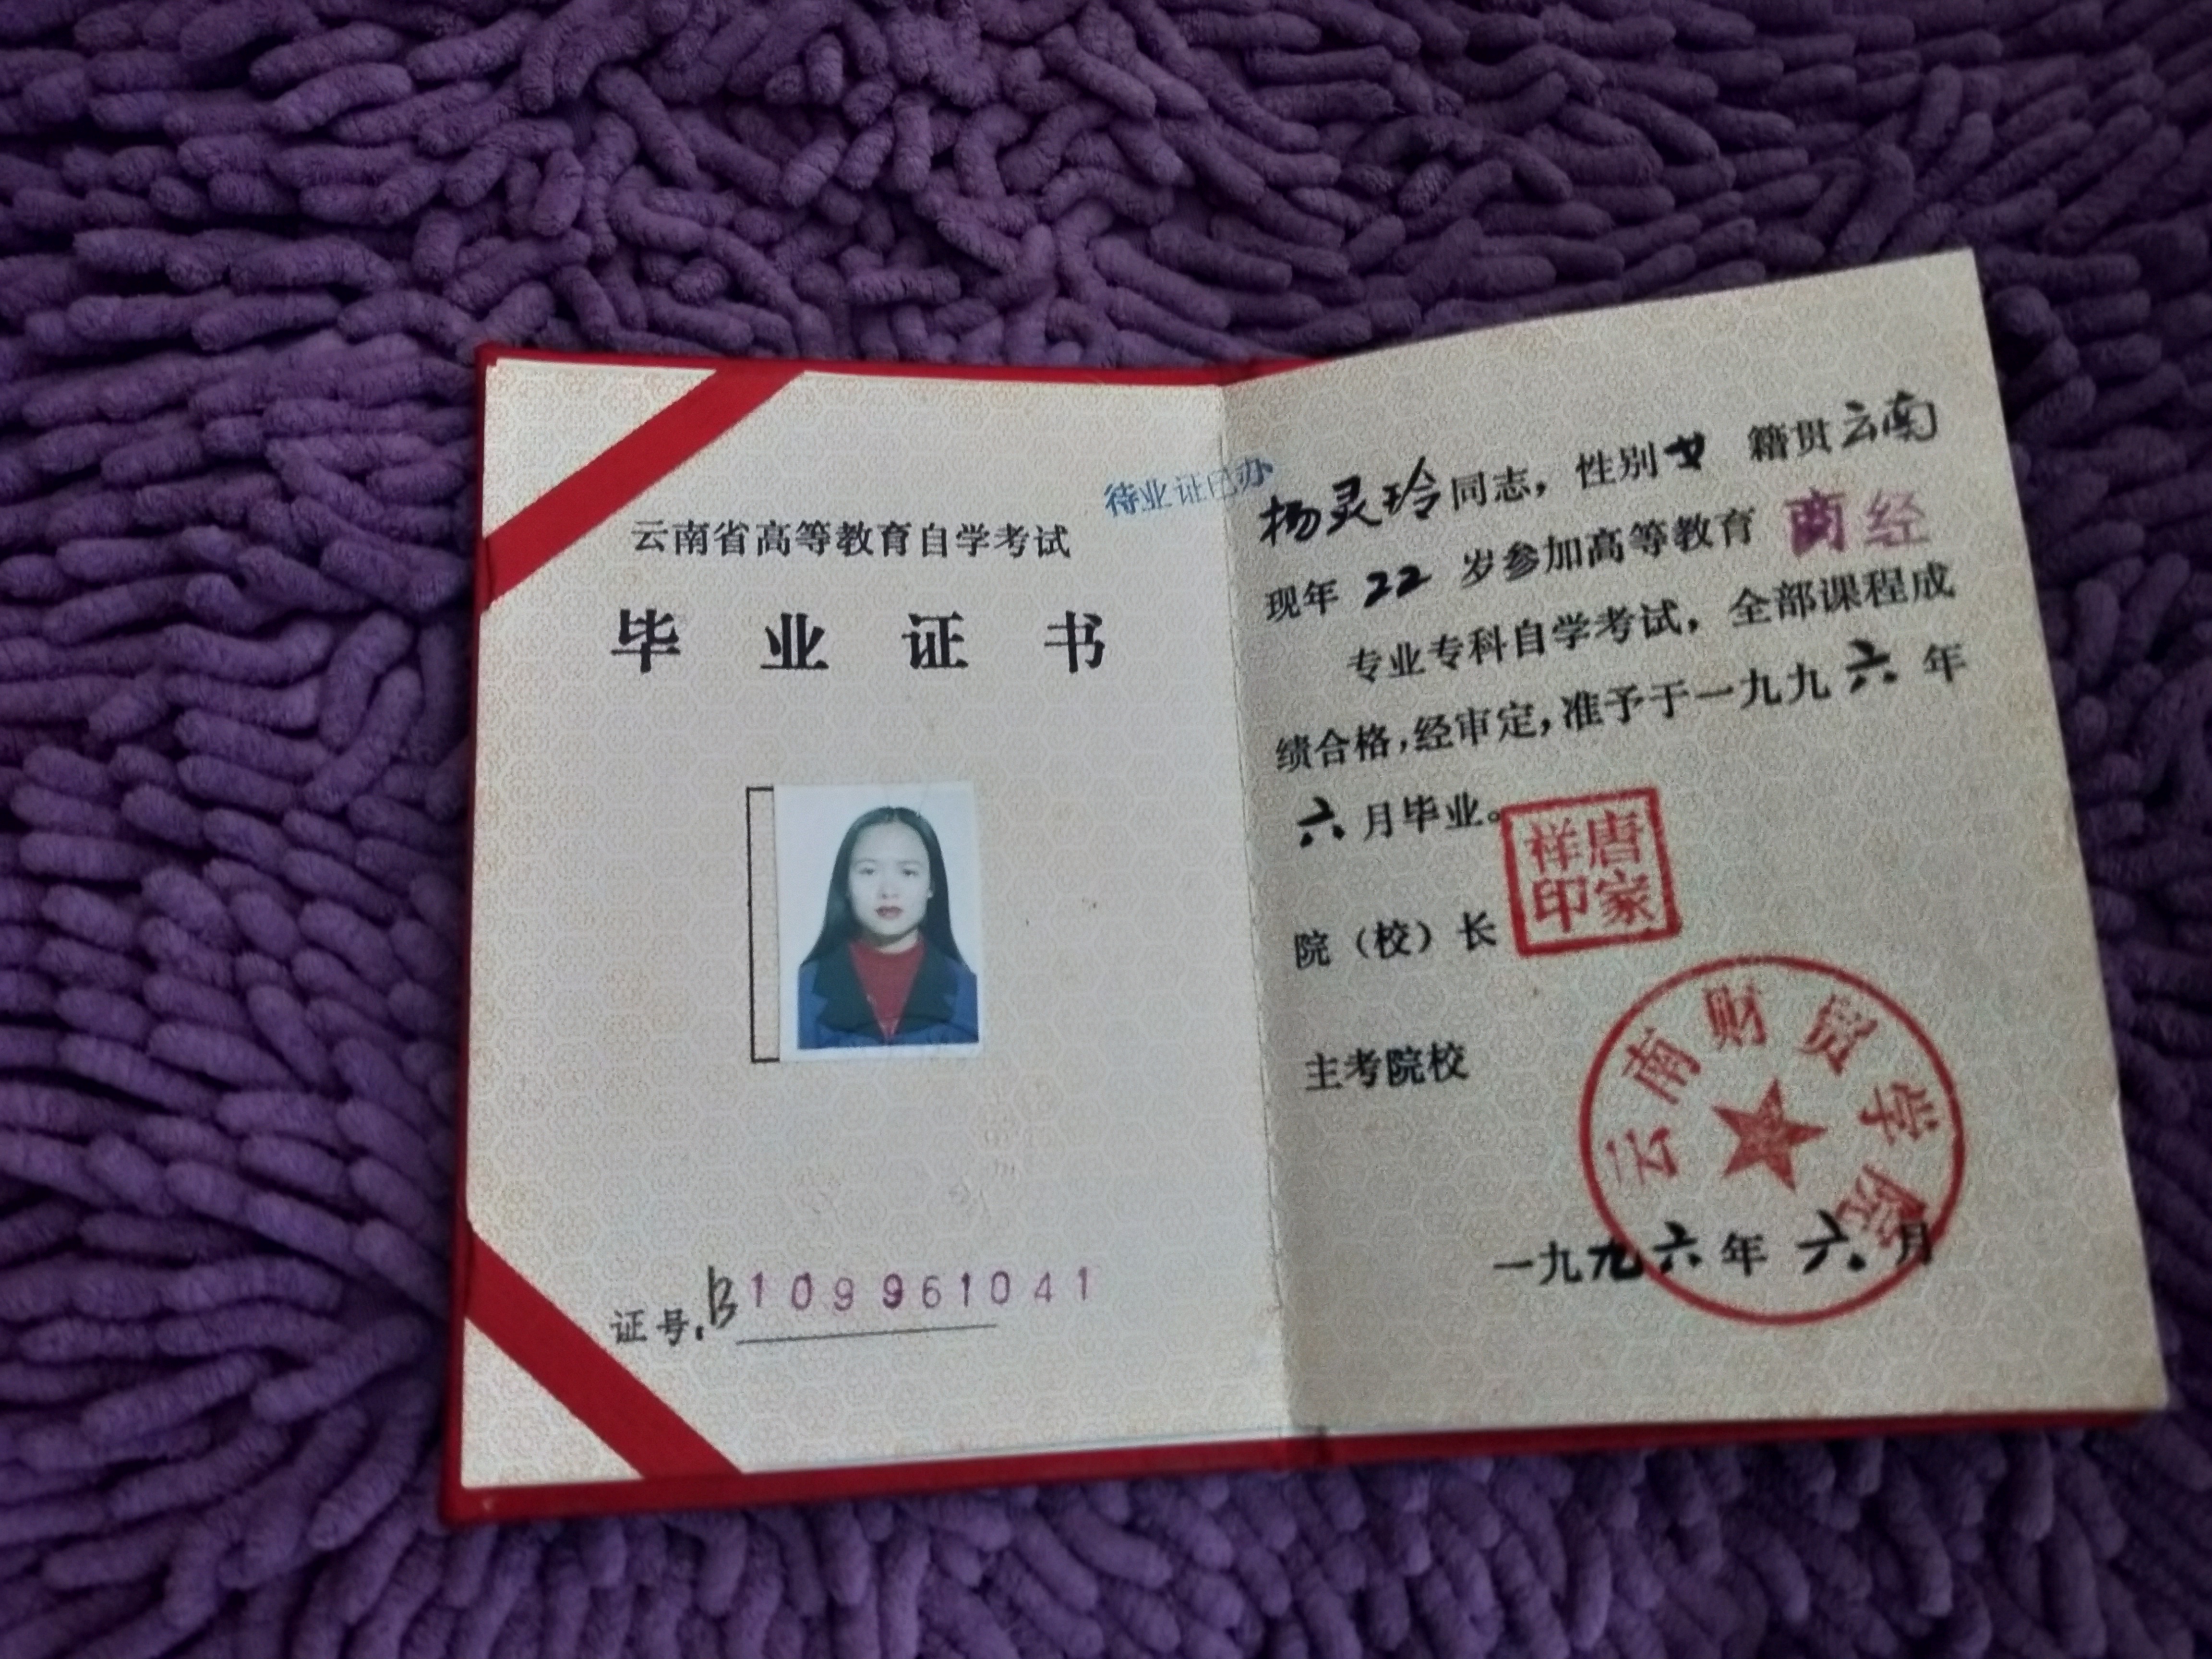 云南省高等教育自学考试
毕业证书
证号.B109961041
待业证已办
杨灵玲同志，性别女 籍贯云南
现年 22 岁参加高等教育 商经
专业专科自学考试，全部课程成
绩合格，经审定，准予于一九九六年
六月毕业。
院（校）长
唐家祥印
主考院校
云南财贸学院
一九九六年六月